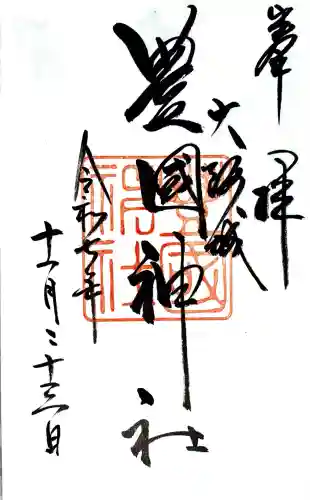 奉拝
大阪城
豊國神社
令和七年
十一月二十六日